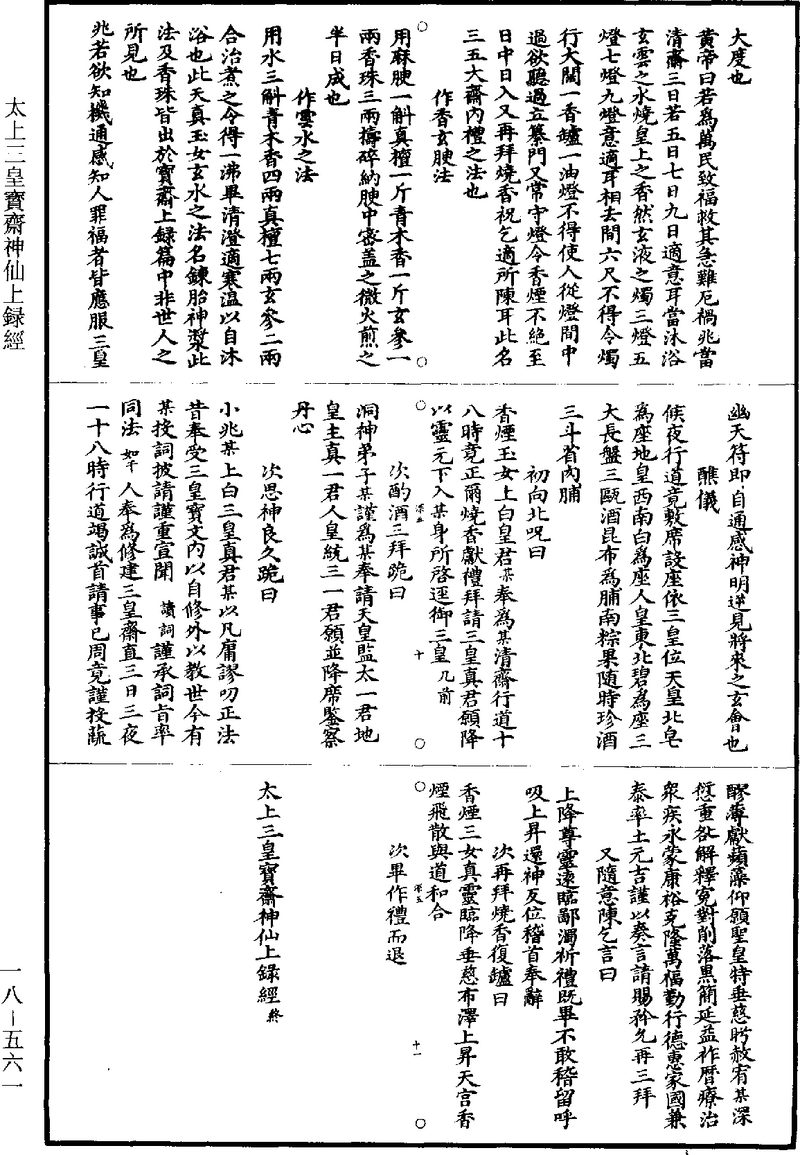 太上三皇寶齋神仙上録經
大度也
黄帝曰若爲萬民致福救其急難厄禍兆當
清齋三日若五日七日九日適意耳當沐浴
玄雲之水燒皇上之香然玄液之燭三燈五
燈七燈九燈意適耳相去間六尺不得令燭
行大闇一香鑪一油燈不得使人從燈間中
過欲聽過立纂門又常守燈令香煙不絶至
日中日入又再拜燒香祝乞適所陳耳此名
三五大齋内禮之法也
作香玄腴法
用麻腴一斛真檀一斤青木香一斤玄參一
兩香珠三兩擣碎納腴中密蓋之微火煎之
半日成也
作雲水之法
用水三斛青木香四兩真檀七兩玄參二兩
合治煮之令得一沸畢清澄適寒温以自沐
浴也此天真玉女玄水之法名鍊胎神漿此
法及香珠皆出於寶齋上録篇中非世人之
所見也
兆若欲知機通感知人罪福者皆應服三皇
幽天符即自通感神明逆見將來之玄會也
醮儀
候夜行道竟敷席設座依三皇位天皇北皂
爲座地皇西南白爲座人皇東北碧爲座三
大長盤三甌酒昆布爲脯南粽果隨時珍酒
三斗省内脯
初向北呪曰
香煙玉女上白皇君某奉爲某清齋行道十
八時竟正爾燒香獻禮拜請三皇真君願降
以靈元下入某身所啓逕御三皇几前
次酌酒三拜跪曰
洞神弟子某謹爲某奉請天皇監太一君地
皇主真一君人皇統三一君願並降席鑒察
丹心
次思神良久跪曰
小兆某上白三皇真君某以凡庸謬叨正法
昔奉受三皇寶文内以自修外以教世今有
某投詞披請謹重宣聞 讀詞 謹承詞旨率
同法 如干 人奉爲修建三皇齋直三日三夜
一十八時行道竭誠首請事已周竟謹投蔬
醪薄獻蘋藻仰願聖皇特垂慈眄赦宥某深
愆重欲解釋寃對削落黒簡延益祚暦療治
衆疾永蒙康裕克隆萬福勤行德惠家國兼
泰率土元吉謹以奏言請賜矜允再三拜
又隨意陳乞言曰
上降尊靈遠臨鄙濁祈禮既畢不敢稽留呼
吸上昇還神反位稽首奉辭
次再拜燒香復鑪曰
香煙三女真靈臨降垂慈布澤上昇天宫香
煙飛散與道和合
次畢作禮而退
太上三皇寶齋神仙上録經 終
十
十一
一八－五六一